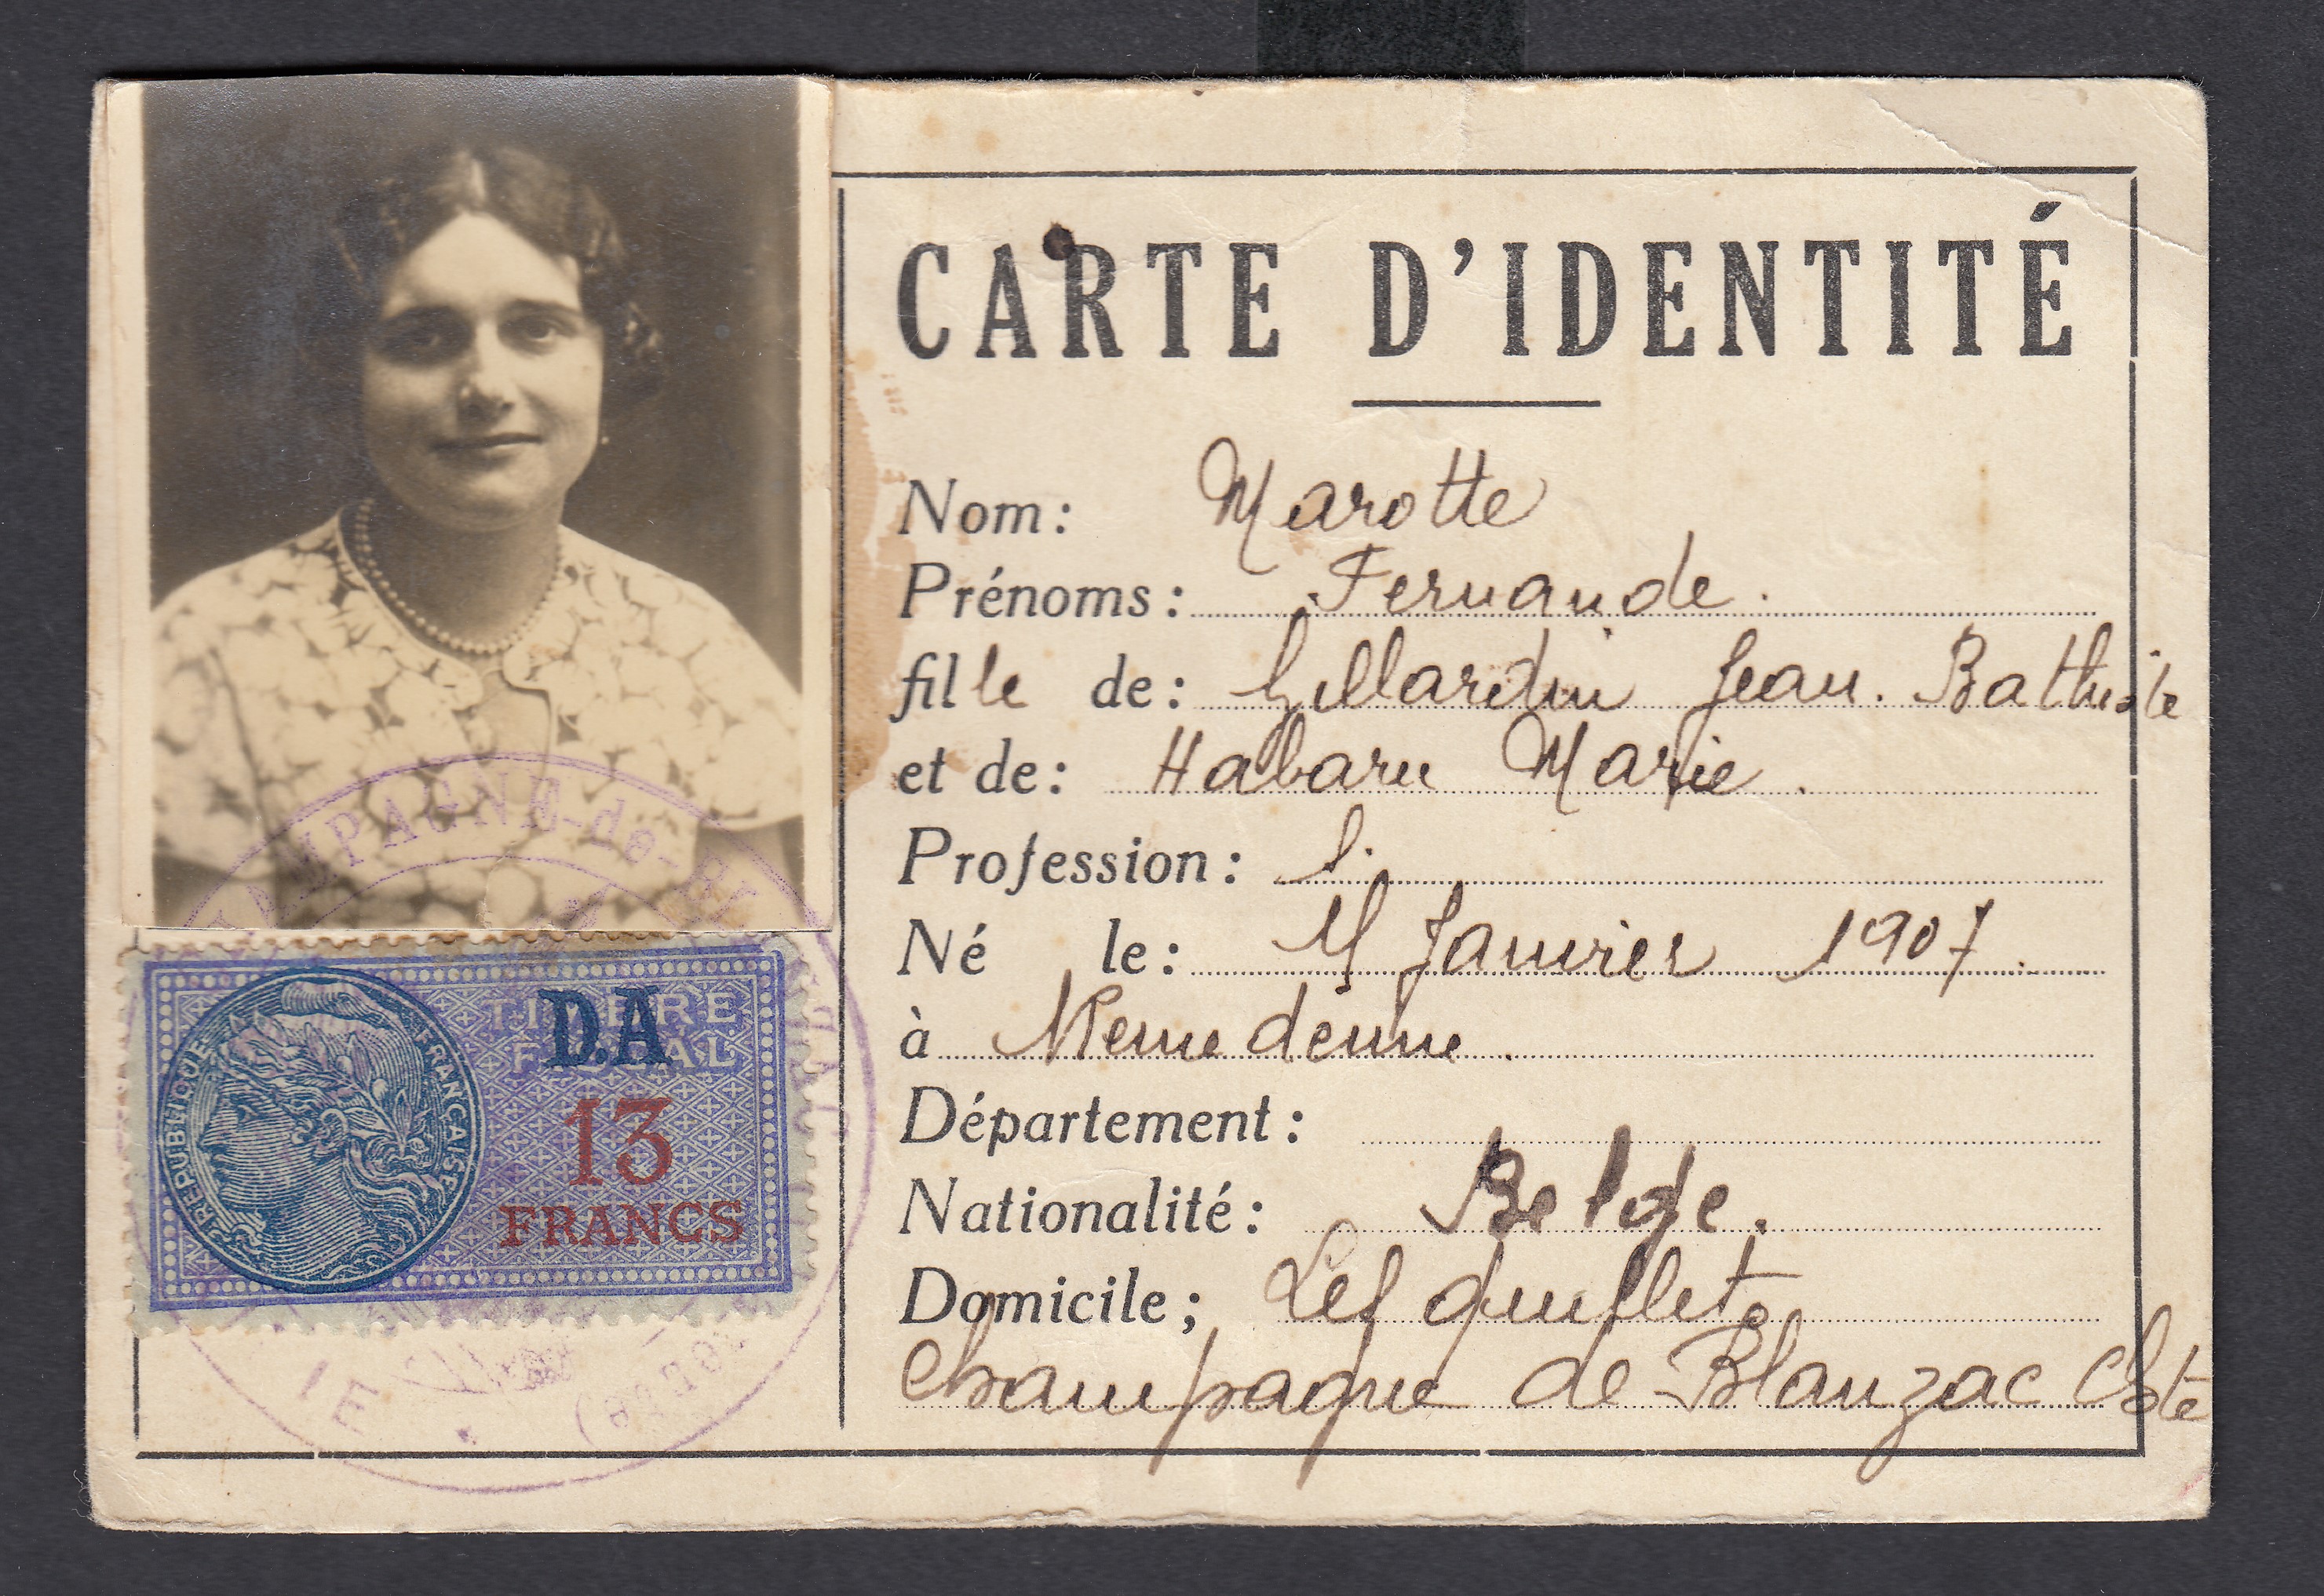 CARTE D'IDENTITÉ
Nom: Marotte
Prénoms: Fernande.
fille de: Gillardin Jean. Bathiste
et de: Habaru Marie.
Profession:
Né le: Janvier 1907.
à
Département:
Nationalité: Belge.
Domicile;
Champagne de Blanzac Chte
AMPAGNE-de-BL
RÉPUBLIQUE FRANÇAISE
TIMBRE
FISCAL
D.A
13
FRANCS